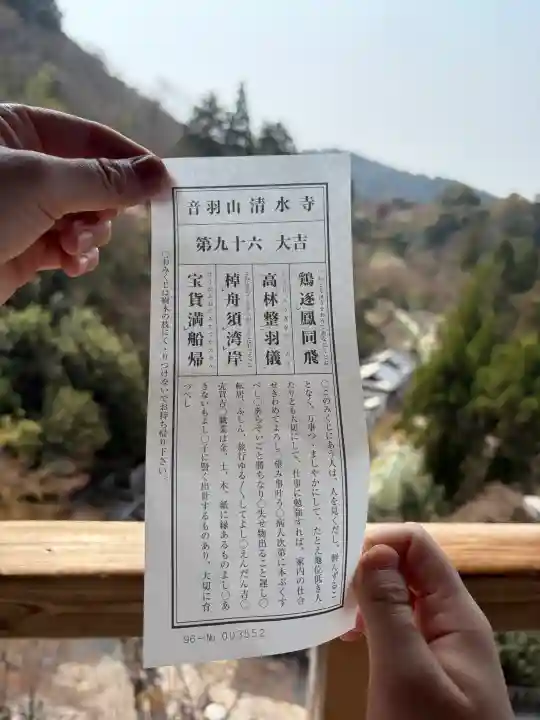 音羽山清水寺
第九十六 大吉
鶏逐鳳同飛
高林整羽儀
棹舟須湾岸
宝貨満船帰
○このみくじにあう人は、人を見くだし、軽んずるこ
となく、万事つゝましやかにして、たとえ地位低き人
たりとも大切にして、仕事に勉強すれば、家内の仕合
せきわめてよろし○望み事叶う○病人次第に本ぷくす
べし○あらそいごと勝ちなり○失せ物出ること遅し○
転居、ふしん、旅行ゆる／＼してよし○えんだん吉○
売買吉○職業は金、土、木、紙に縁あるものよし○あ
きないもよし○子に賢く出世するものあり、大切に育
つべし
○おみくじは樹木の枝にくゝりつけないでお持ち帰り下さい。
96-№ 003552